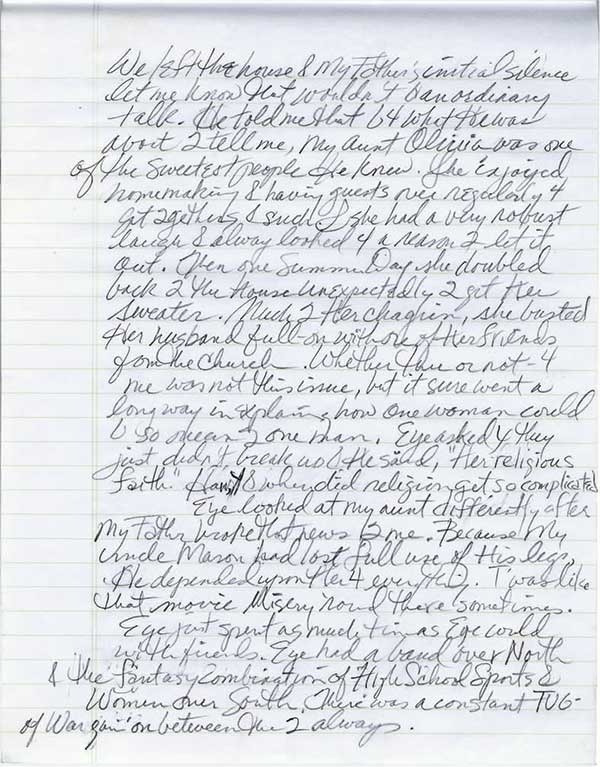 We left the house & My Father's initial silence
let me know that wouldn't b an ordinary
talk. He told me that b4 what He was
about 2 tell me, my aunt Olivia was one
of the sweetest people He knew. She enjoyed
homemaking & having guests over regularly 4
get 2gethers & such. & she had a very robust
laugh & alway looked 4 a reason 2 let it
out. Then one Summer Day she doubled
back 2 the House unexpectedly 2 get Her
Sweater. Much 2 Her chagrin, she busted
Her husband full-on with one of Her friends
from the church. Whether true or not - 4
me was not this issue, but it sure went a
long way in explaing how one woman could
b so mean 2 one man. Eye asked Y they
just didn't break up & He said, "Her religious
faith." & when did religion get so complicated
Eye looked at my aunt differently after
My Father broke that news 2 me. Because My
Uncle Mason had lost full use of His legs,
He depended upon Her 4 everything. T'was like
that movie Misery round there sometimes.
Eye just spent as much time as Eye could
with friends. Eye had a band over North
& the fantasy combination of High School Sports &
Women over South. There was a constant TUG-
of War goin' on between the 2 always.